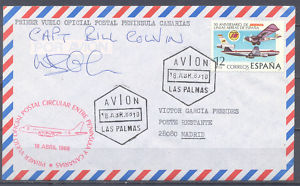 PRIMER VUELO OFICIAL POSTAL PENINSULA CANARIAS
POR AVION
CAPT BILL COLVIN
50 ANIVERSARIO DE
LINEAS AEREAS DE ESPAÑA
12 CORREOS ESPAÑA
AVION
18 ABR. 8010
LAS PALMAS
AVION
18 ABR. 8010
LAS PALMAS
PRIMER VUELO OFICIAL POSTAL CIRCULAR ENTRE PENINSULA Y CANARIAS
18 ABRIL 1980
VICTOR GARCIA PEREDES
POSTE RESTANTE
28080 MADRID